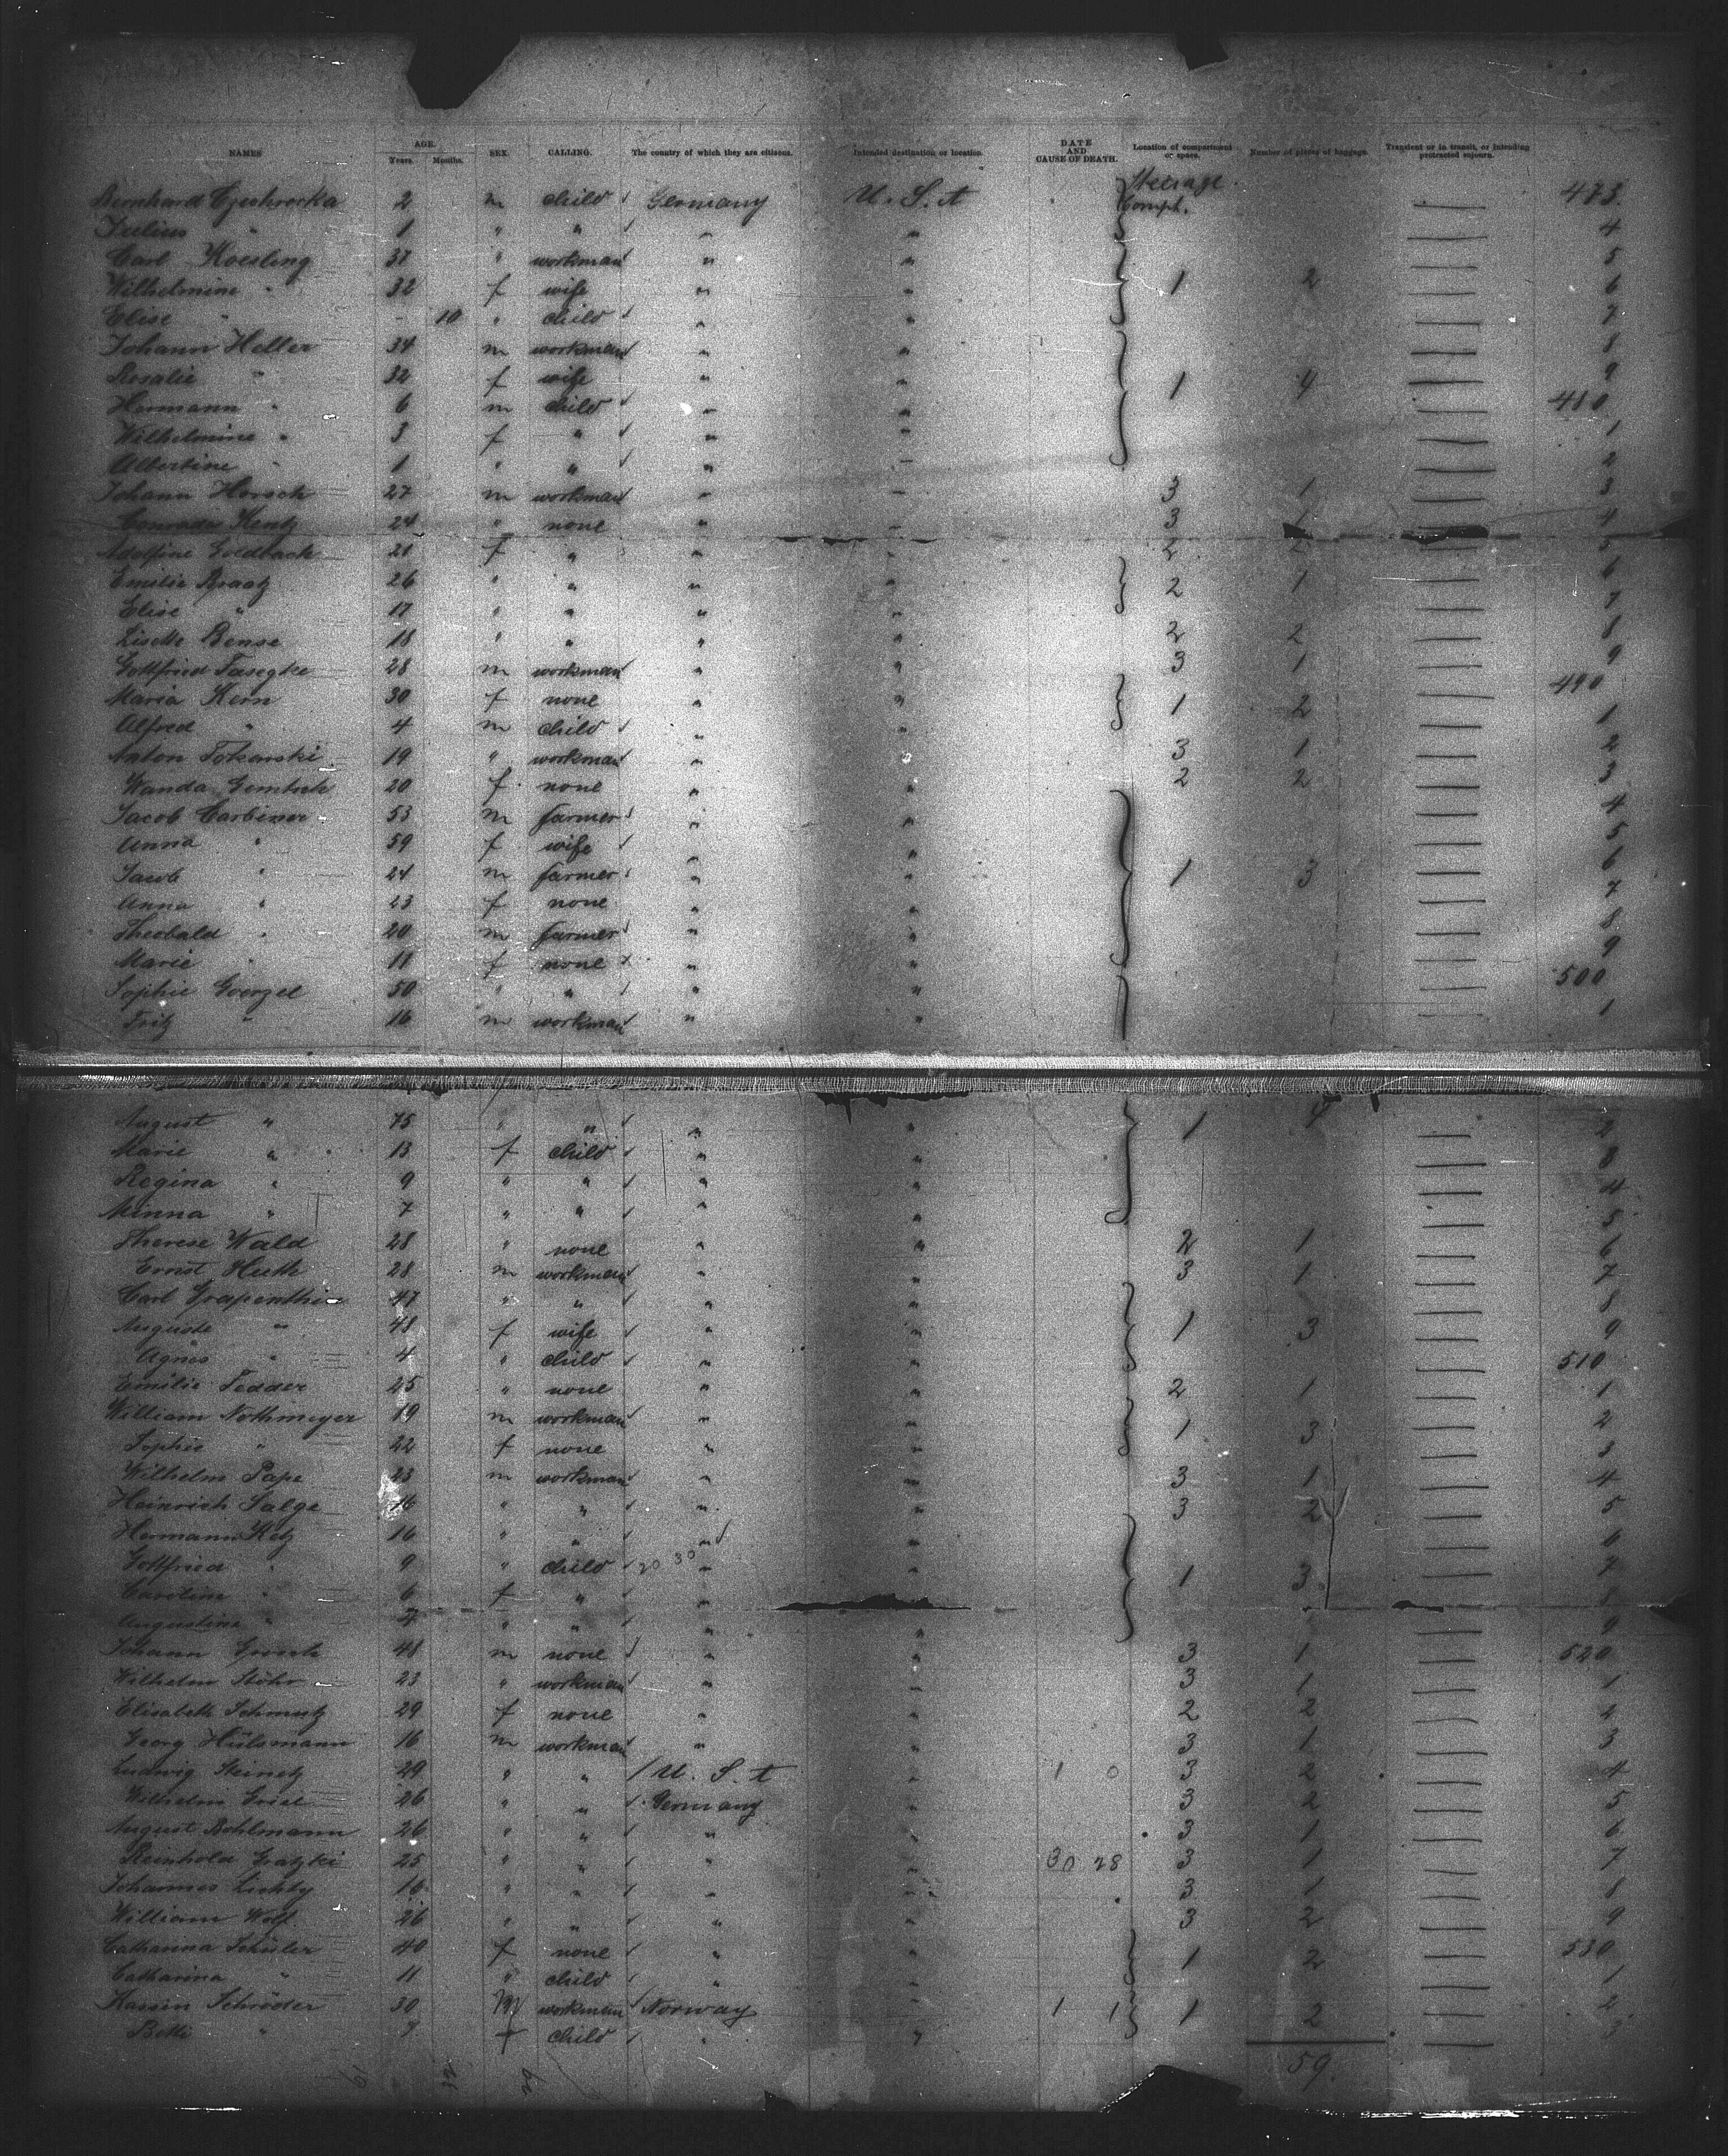 NAMES AGE. Years. Months. SEX. CALLING. The country of which they are citizens. Intended destination or location. DATE AND CAUSE OF DEATH. Location of compartment or space. Number of pieces of baggage. Transient or in transit, or intending protracted sojourn.
Bernhard 2 m child Germany U.S.A Steerage Compt. 473
Julius " 1 " " " " 4
Carl Koesling 37 " workman " " 5
Wilhelmine " 32 f wife " " 1 2 6
Elise " - 10 " child " " 7
Johann Heller 34 m workman " " 8
Rosalie " 32 f wife " " 1 4 9
Hermann " 6 m child " " 480
Wilhelmine " 3 f " " " 1
Albertine " 1 " " " " 2
Johann Horsch 27 m workman " " 3 1 3
Kentz 24 " none " " 3 1 4
Adolfine Goldbach 21 f " " " 2 2 5
Emilie Braatz 26 " " " " 2 1 6
Elise " 17 " " " " 7
Lisette Bense 18 " " " " 2 2 8
Gottfried 28 m workman " " 3 1 9
Maria Kern 30 f none " " 1 2 490
Alfred " 4 m child " " 1
Anton Tokarski 19 " workman " " 3 1 2
Wanda 20 f none " " 2 2 3
Jacob Carbiner 53 m farmer " " 4
Anna " 59 f wife " " 5
Jacob " 24 m farmer " " 1 3 6
Anna " 23 f none " " 7
Theobald " 20 m farmer " " 8
Marie " 17 f none " " 9
Sophie Goerzel 50 " " " " 500
Fritz " 16 m workman " " 1
August " 15 " " " " 1 4 2
Marie " 13 f child " " 3
Regina " 9 " " " " 4
Minna " 7 " " " " 5
Therese Wald 28 " none " " 2 1 6
Ernst Huth 28 m workman " " 3 1 7
Carl Grapenthin 47 " " " " 8
Auguste " 48 f wife " " 1 3 9
Agnes " 4 " child " " 510
Emilie Tedder 25 " none " " 2 1 1
William Nothmeyer 19 m workman " " 1 3 2
Sophie " 22 f none " " 3
Wilhelm Pape 23 m workman " " 3 1 4
Heinrich Salge 16 " " " " 3 2 5
Hermann Ketz 16 " " " " 6
Gottfried " 9 " child 20 30 " " 1 3 7
Caroline " 6 f " " " 8
Augustine " 4 " " " " 9
Johann Grosch 48 m none " " 3 1 520
Wilhelm Stöhr 23 " workman " " 3 1 1
Elisabeth Schmutz 29 f none " " 2 2 2
Georg Hülsmann 16 m workman " " 3 1 3
Ludwig Steinetz 29 " " U.S.A " 1 0 3 2 4
Wilhelm 26 " " Germany " 3 2 5
August Bohlmann 26 " " " " 3 1 6
Reinhold Gratzki 25 " " " " 30 28 3 1 7
Johannes Lichty 16 " " " " 3 1 8
William Wolf 26 " " " " 3 2 9
Catharina Schüler 40 f none " " 1 2 530
Catharina " 11 " child " " 1
Schröder 30 M workman Norway " 1 1 1 2 2
Betti " 7 f child " " 3
59.